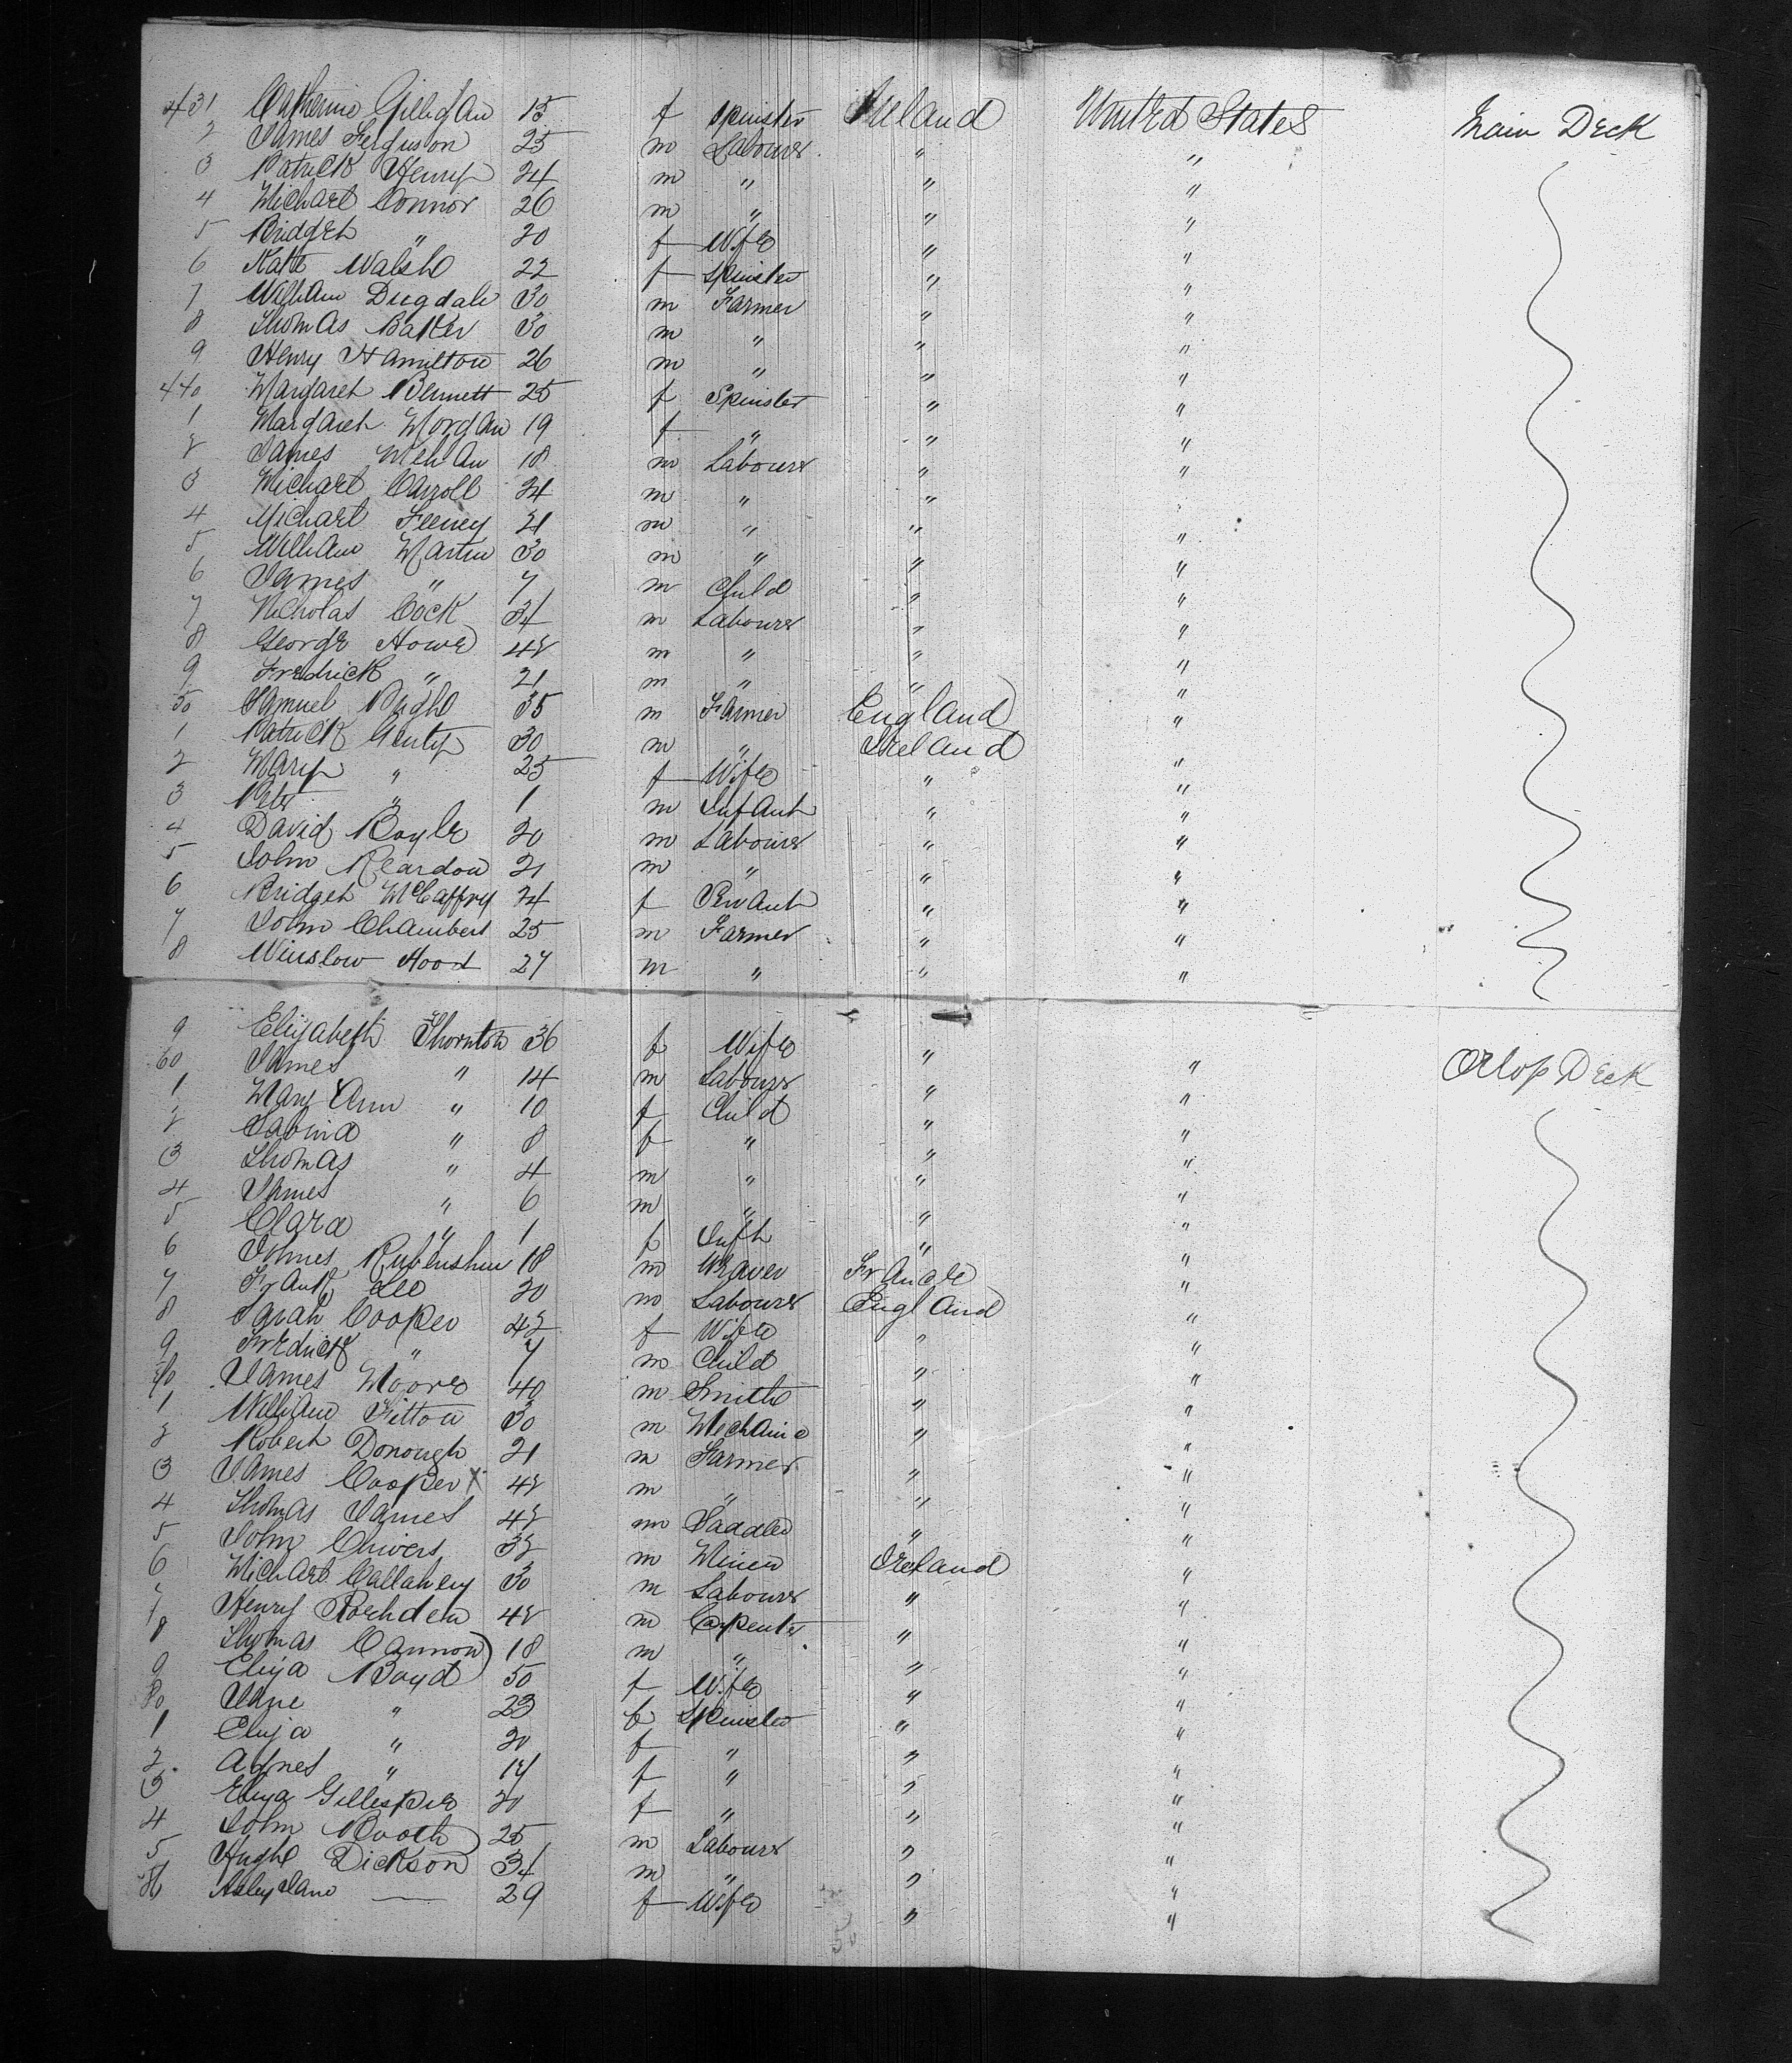 431 Catherine Gilligan 15 f Spinster Ireland United States Main Deck
2 James Ferguson 25 m Labourer " "
3 Patrick Henry 24 m " " "
4 Michael Connor 26 m " " "
5 Bridget " 20 f Wife " "
6 Kate Walsh 22 f Spinster " "
7 William Dugdale 30 m Farmer " "
8 Thomas Baker 30 m " " "
9 Henry Hamilton 26 m " " "
440 Margaret Bennett 25 f Spinster " "
1 Margaret Morgan 19 f " " "
2 James Mehan 18 m Labourer " "
3 Michael Carroll 24 m " "
4 Michael Feeney 21 m " " "
5 William Martin 30 m " " "
6 James " 7 m Child " "
7 Nicholas Cock 34 m Labourer " "
8 George Howe 42 m " " "
9 Fredrick " 21 m " " "
50 Samuel Pugh 35 m Farmer England "
1 Patrick Genty 30 m " Ireland "
2 Mary " 25 f Wife " "
3 Peter " 1 m Infant " "
4 David Boyle 20 m Labourer " "
5 John Reardon 21 m " " "
6 Bridget McCaffry 24 f Servant " "
7 John Chambers 25 m Farmer " "
8 Winslow Hood 27 m " " "
9 Elizabeth Thornton 36 f Wife " " Orlop Deck
60 James " 14 m Labourer " "
1 Mary Ann " 10 f Child " "
2 Sabina " 8 f " " "
3 Thomas " 4 m " " "
4 James " 6 m " " "
5 Clara " 1 f Inft " "
6 18 m Weaver France "
7 Frank Lee 20 m Labourer England "
8 Sarah Cooper 42 f Wife " "
9 Fredick " 7 m Child " "
70 James Moore 40 m Smith " "
1 William Fitton 30 m Mechanic " "
2 Robert Donough 21 m Farmer " "
3 James Cooper X 42 m " " "
4 Thomas James 42 m Saddler " "
5 John Chivers 32 m Miner Ireland "
6 Michael Callahey 30 m Labourer " "
7 Henry 42 m Carpenter " "
8 Thomas Cannon 18 m " " "
9 Eliza Boyd 50 f Wife " "
80 Jane " 23 f Spinster " "
1 Eliza " 20 f " " "
2 Agnes " 17 f " " "
3 Eliza Gillespie 20 f " " "
4 John Booth 25 m Labourer " "
5 Hugh Dickson 34 m " " "
86 Jane — 29 f Wife " "